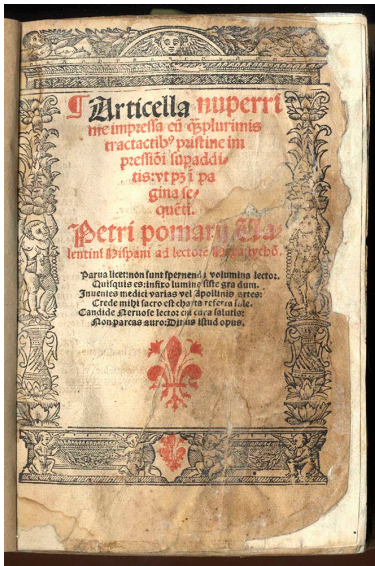 ¶ Articella nuperri
me impressa cũ q̃plurimis
tractactibꝰ pristine im
pressiõi supaddi-
tis: vt pꝫ ĩ pa
gina se-
quẽti.
Petri pomarij Va-
lentini Hispani ad lectorẽ
Parua licet: non sunt spernenda volumina lector.
Quisquis es: infixo lumine siste gradum.
Inuenies medici varias vel Apollinis artes:
Crede mihi sacro est charta referta
Candide lector: cui cura salutis:
Non parcas auro: istud opus.